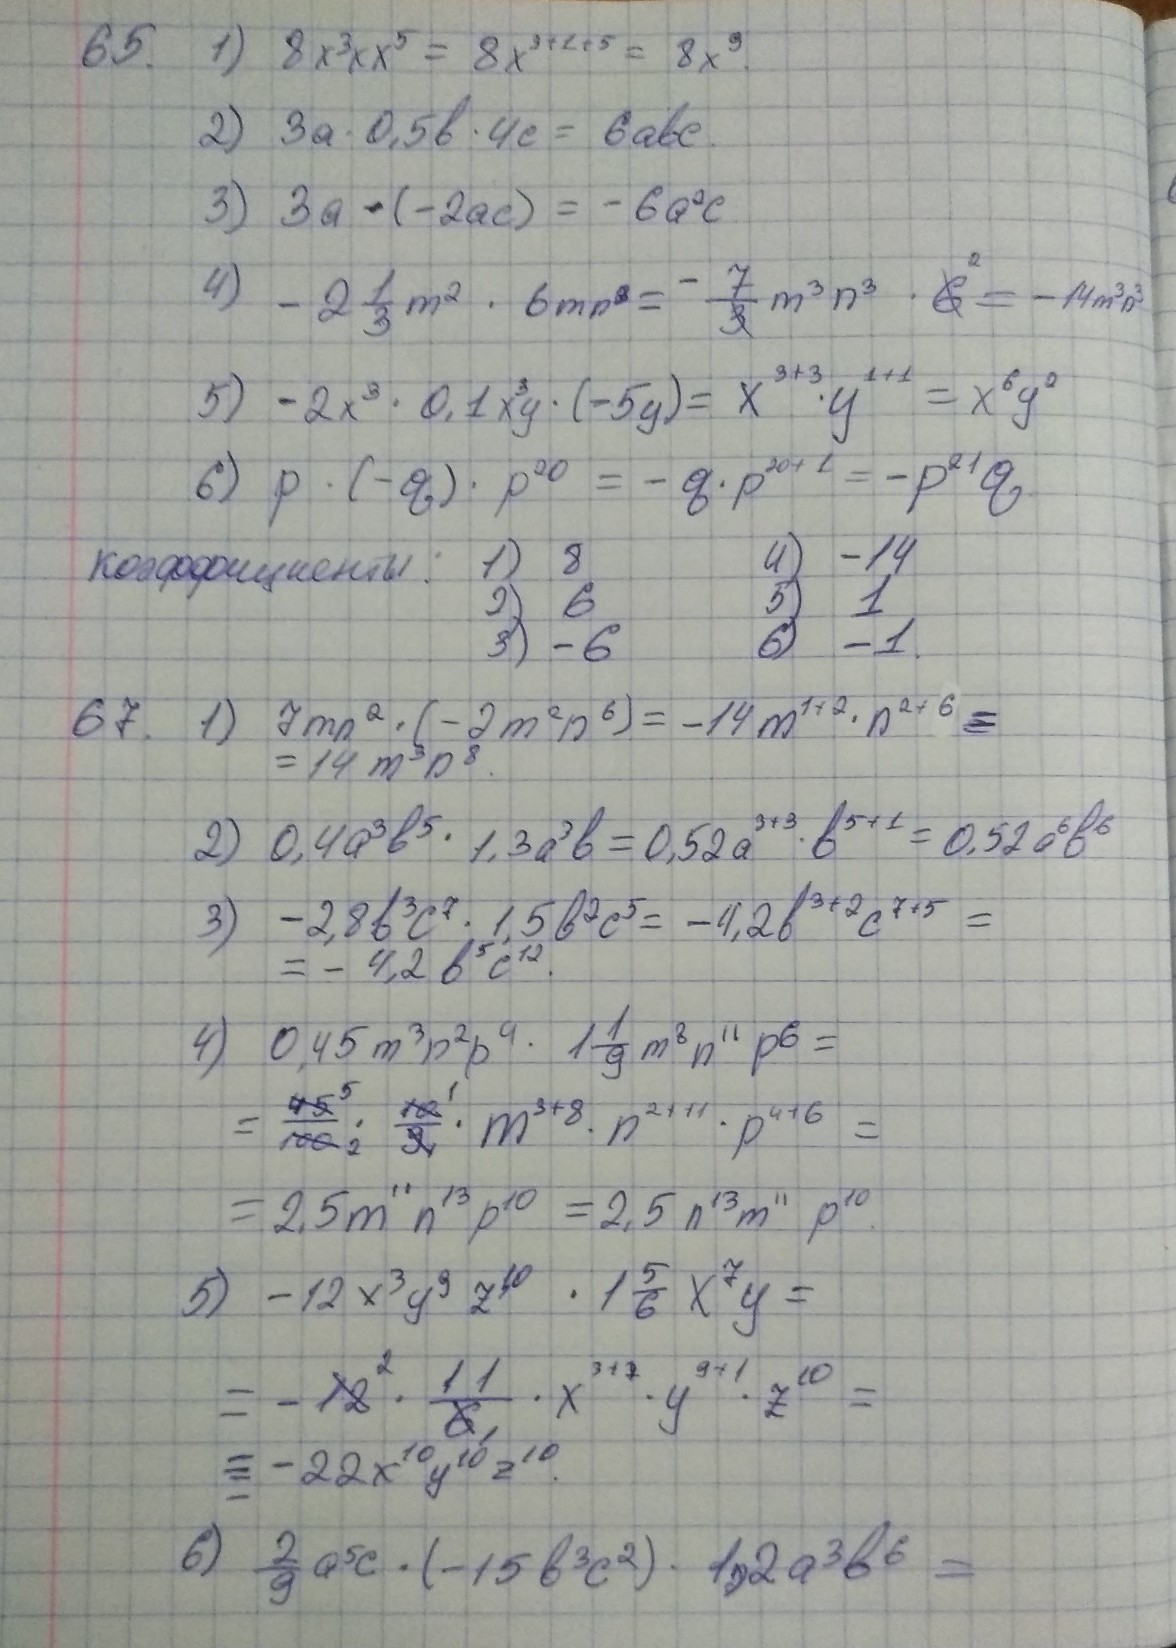 65. 1) 8x³xx⁵ = 8x³⁺¹⁺⁵ = 8x⁹.
2) 3a · 0,5b · 4c = 6abc.
3) 3a · (-2ac) = -6a²c
4) -2 1/3 m² · 6mn³ = - 7/3 m³n³ · 6² = -14m³n³
5) -2x³ · 0,1x³y · (-5y) = x³⁺³ · y¹⁺¹ = x⁶y²
6) p · (-q) · p²⁰ = -q · p²⁰⁺¹ = -p²¹q
коэффициенты: 1) 8 4) -14
2) 6 5) 1
3) -6 6) -1.
67. 1) 7mn² · (-2m²n⁶) = -14m¹⁺² · n²⁺⁶ =
= 14m³n⁸.
2) 0,4a³b⁵ · 1,3a³b = 0,52a³⁺³ · b⁵⁺¹ = 0,52a⁶b⁶
3) -2,8b³c⁷ · 1,5b²c⁵ = -4,2b³⁺²c⁷⁺⁵ =
= -4,2b⁵c¹².
4) 0,45m³n²p⁴ · 1 1/9 m⁸n¹¹p⁶ =
= 45⁵/100₂ · 10¹/9₁ · m³⁺⁸ · n²⁺¹¹ · p⁴⁺⁶ =
= 2,5m¹¹n¹³p¹⁰ = 2,5n¹³m¹¹p¹⁰.
5) -12x³y⁹z¹⁰ · 1 5/6 x⁷y =
= -12² · 11/6₁ · x³⁺⁷ · y⁹⁺¹ · z¹⁰ =
= -22x¹⁰y¹⁰z¹⁰.
6) 2/9 a⁵c · (-15b³c²) · 1,2a³b⁶ =